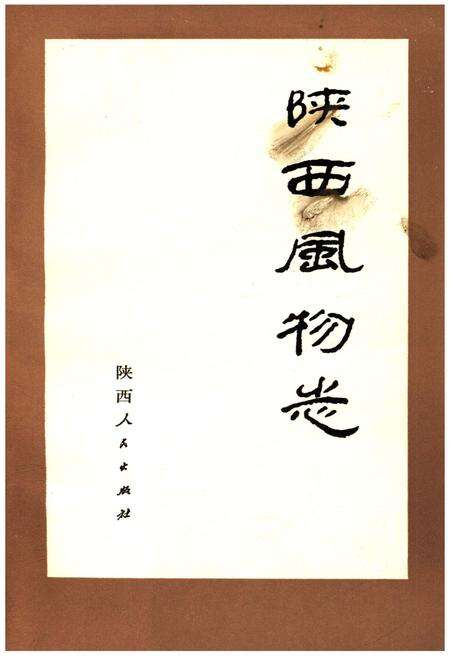 陕西風物志
陕西人民出版社